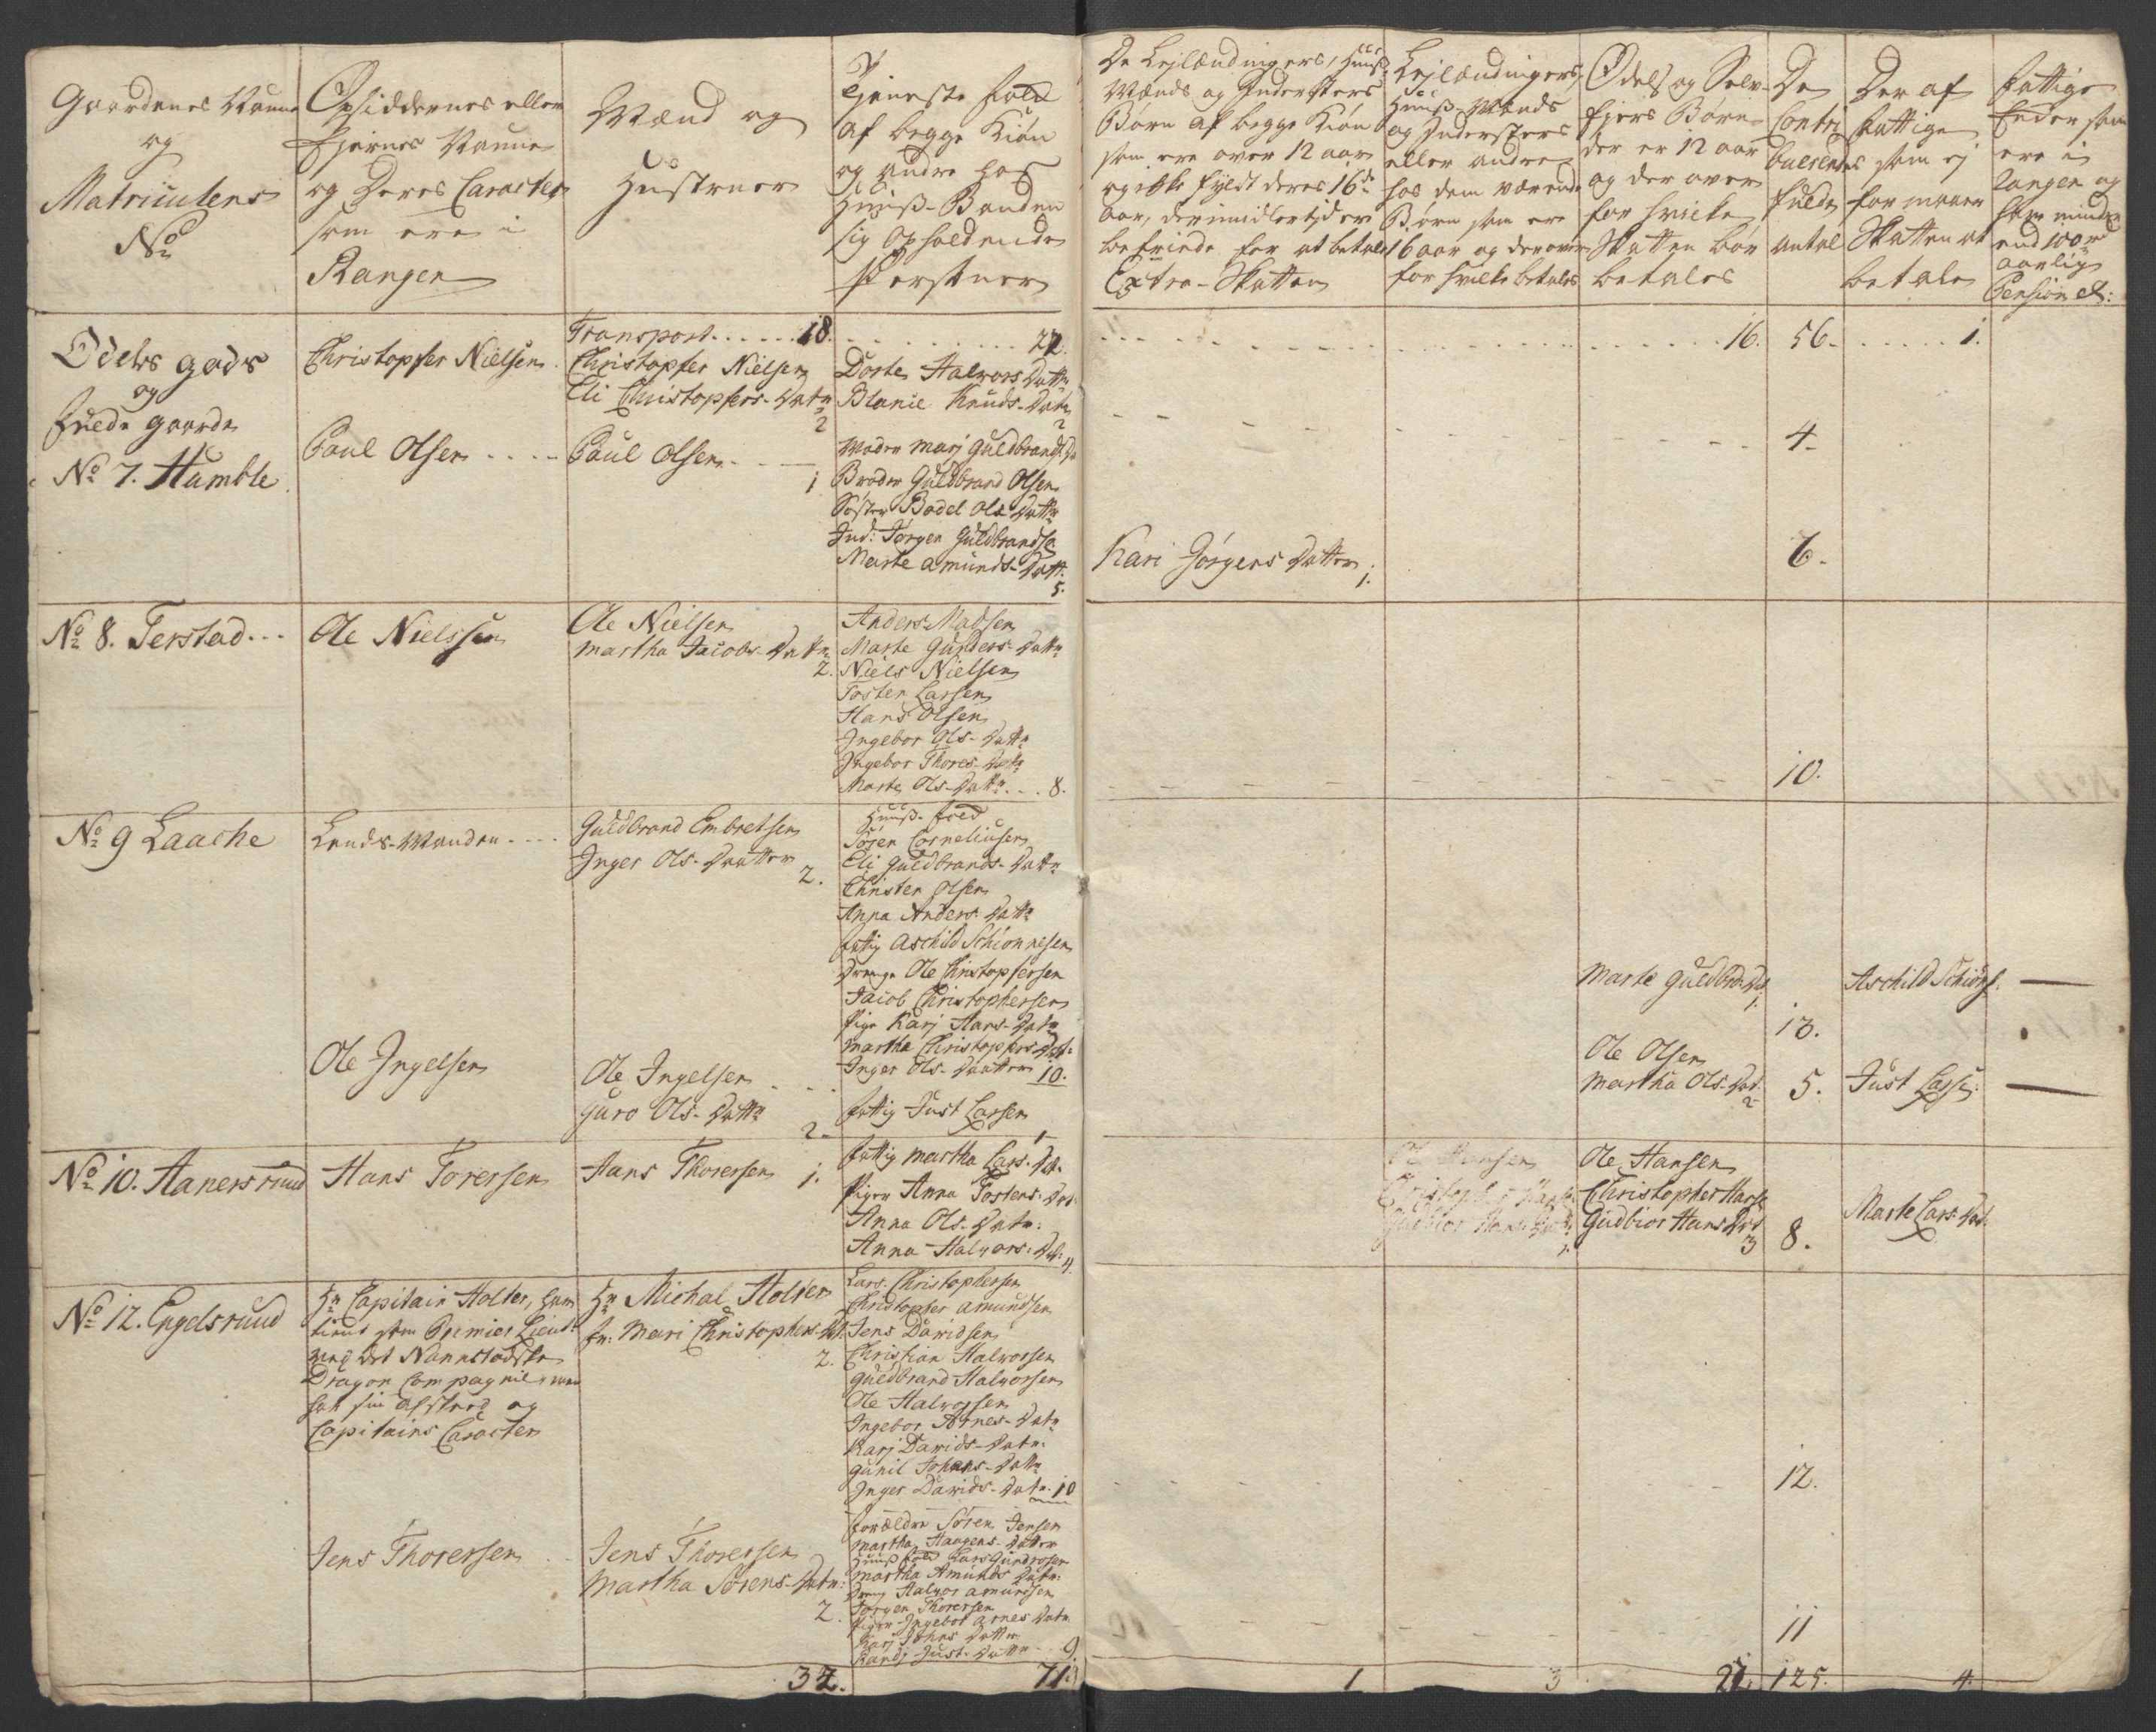 Gaardenes Naune
og
Matriculens
No
Opsiddernes eller
Ejernes Naune
og Deres Caracter
som ere i
Rangen
Mænd og
Hustruer
Tjeneste folk
af begge Kiøn
og andre hos
Huuß-Bonden
sig opholdende
Persohner
De Lejlændingers, Huuß-
Mænds og Indersters
Børn af begge Kiøn
som ere over 12 aar
og ikke fyldt deres 16de
aar, der imidlertid er
befriede for at betale
Extra-Skatten
Lejlændingers,
Huuß-Mænds
og Indersters
eller andre
hos dem værende
Børn som ere
16 aar og derover
for hvilke betales
Odels og Selv-
Ejers Børn
der er 12 aar
og der over
for hvilke
Skatten bør
betales
De
Contri
buerendes
fulde
antal
Der af
fattige
som ej
formaaer
Skatten at
betale
fattige
Enker som
ere i
Rangen og
have mindre
end 100 rd
aarlig
Pension etc:
Odels gods
og
fulde gaarde
No 7. Humble
Christopher Nielsen
Paul Olsen
Transport 18.
Christopher Nielsen
Eli Christophers-Datr
2
Paul Olsen
1
22.
Dorte Halvors Dattr
Blanie Knuds-Datr
2
Moder Marj Guldbrands Dr
Broder Guldbrand Olsen
Søster Bodel Ols Dattr
Ind: Jørgen Guldbrands:
Marte Amunds-Datt:
5.
16. 56. 1.
4.
Kari Jørgens Datter 1.
6.
No 8. Terstad
Ole Nielssen
Ole Nielsen
Martha Jacobs-Dattr
2.
Anders Madsen
Marte Gunders-Dattr
Niels Nielsen
Tosten Larsen
Hans Olsen
Ingebor Ols-Dattr
Ingebor Thores-Dattr
Marte Ols-Dattr 8.
10.
No 9 Laache
Lends-Manden
Guldbrand Embretsen
Inger Ols-Daatter
2.
Huuß-folk
Søren Corneliusen
Eli Guldbrands-Dattr
Christen Olsen
Anna Anders Dattr
fattig Aschild Schiønnesen
Drenge Ole Christophersen
Jacob Christophersen
Pige Karj Hans-Datr
Martha Christophers Dat:
Inger Ols-Daatter 10.
Marte Guldbr: Dat. 1.
13.
Aschild Schiøn:
Ole Ingelsen
Ole Ingelsen
Guro Ols-Dattr
2
fattig Just Larsen
1
Ole Olsen
Martha Ols-Dat.
2
5.
Just Lars:
No 10. Hanersruud
Hans Torersen
Hans Thorersen 1.
fattig Martha Lars-Dat.
Pigen Anna Tostens-Dat:
Anna Ols-Datr:
Anna Halvors: Dat: 4.
Ole Hansen
Christopher Hans:
Gudbior Hans Dat
3
Ole Hansen
Christopher Hans
Gudbior Hans Dat
3
8.
Marte Lars: Dat:
No 12. Engelsruud
Hr Capitain Holter, har
tient som Premier Lieut:
ved det Nannestadske
Dragon Compagnie, men
fak sin afskeed og
Capitains Caracter
Hr Michal Holter
fr: Mari Christophers Dat:
2.
Lars Christophersen
Christopher Amundsen
Jens Davidsen
Christian Halvorsen
Guldbrand Halvorsen
Ole Halvorsen
Ingebor Arnes-Datr
Karj Davids-Datr:
Gunil Johans-Dattr
Inger Davids-Datr. 10
12.
Jens Thorersen
Jens Thorersen
Martha Sørens-Datr:
2.
forældre Søren Jensen
Martha Haagens-Datter
Huuß folk Lars Gundersen
Martha Amunds Datr:
Dreng Halvor Amundsen
Jørgen Thorersen
Pigen Ingebor Arnes Datr
Karj Johns Dattr
Randj Just-Dattr 9.
11
34. 71. 1 3 21. 125. 4.